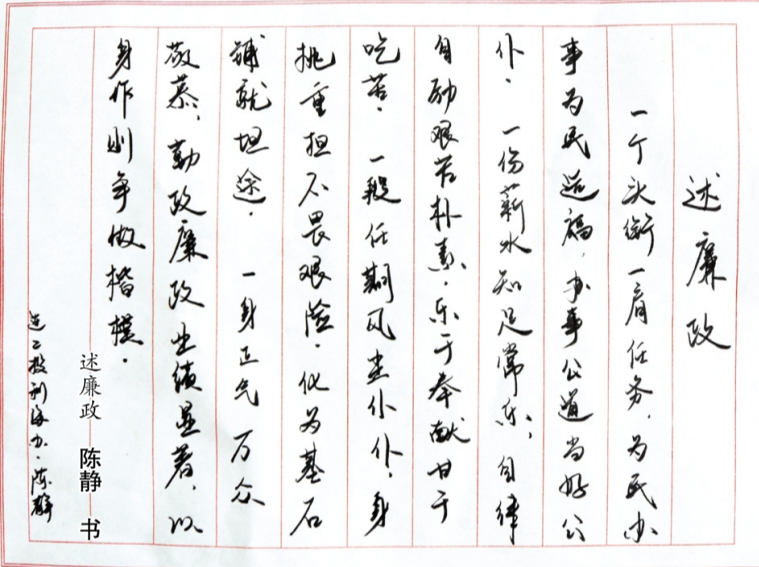 述廉政
一个头衔一肩任务，为民办
事为民造福，办事公道当好公
仆。一份薪水知足常乐，自律
自励艰苦朴素，乐于奉献甘于
吃苦。一段任期风尘仆仆，身
挑重担不畏艰险，化为基石
铺就坦途。一身正气万众
敬慕，勤政廉政业绩显著，以
身作则争做楷模。
述廉政 陈静 书
陈静